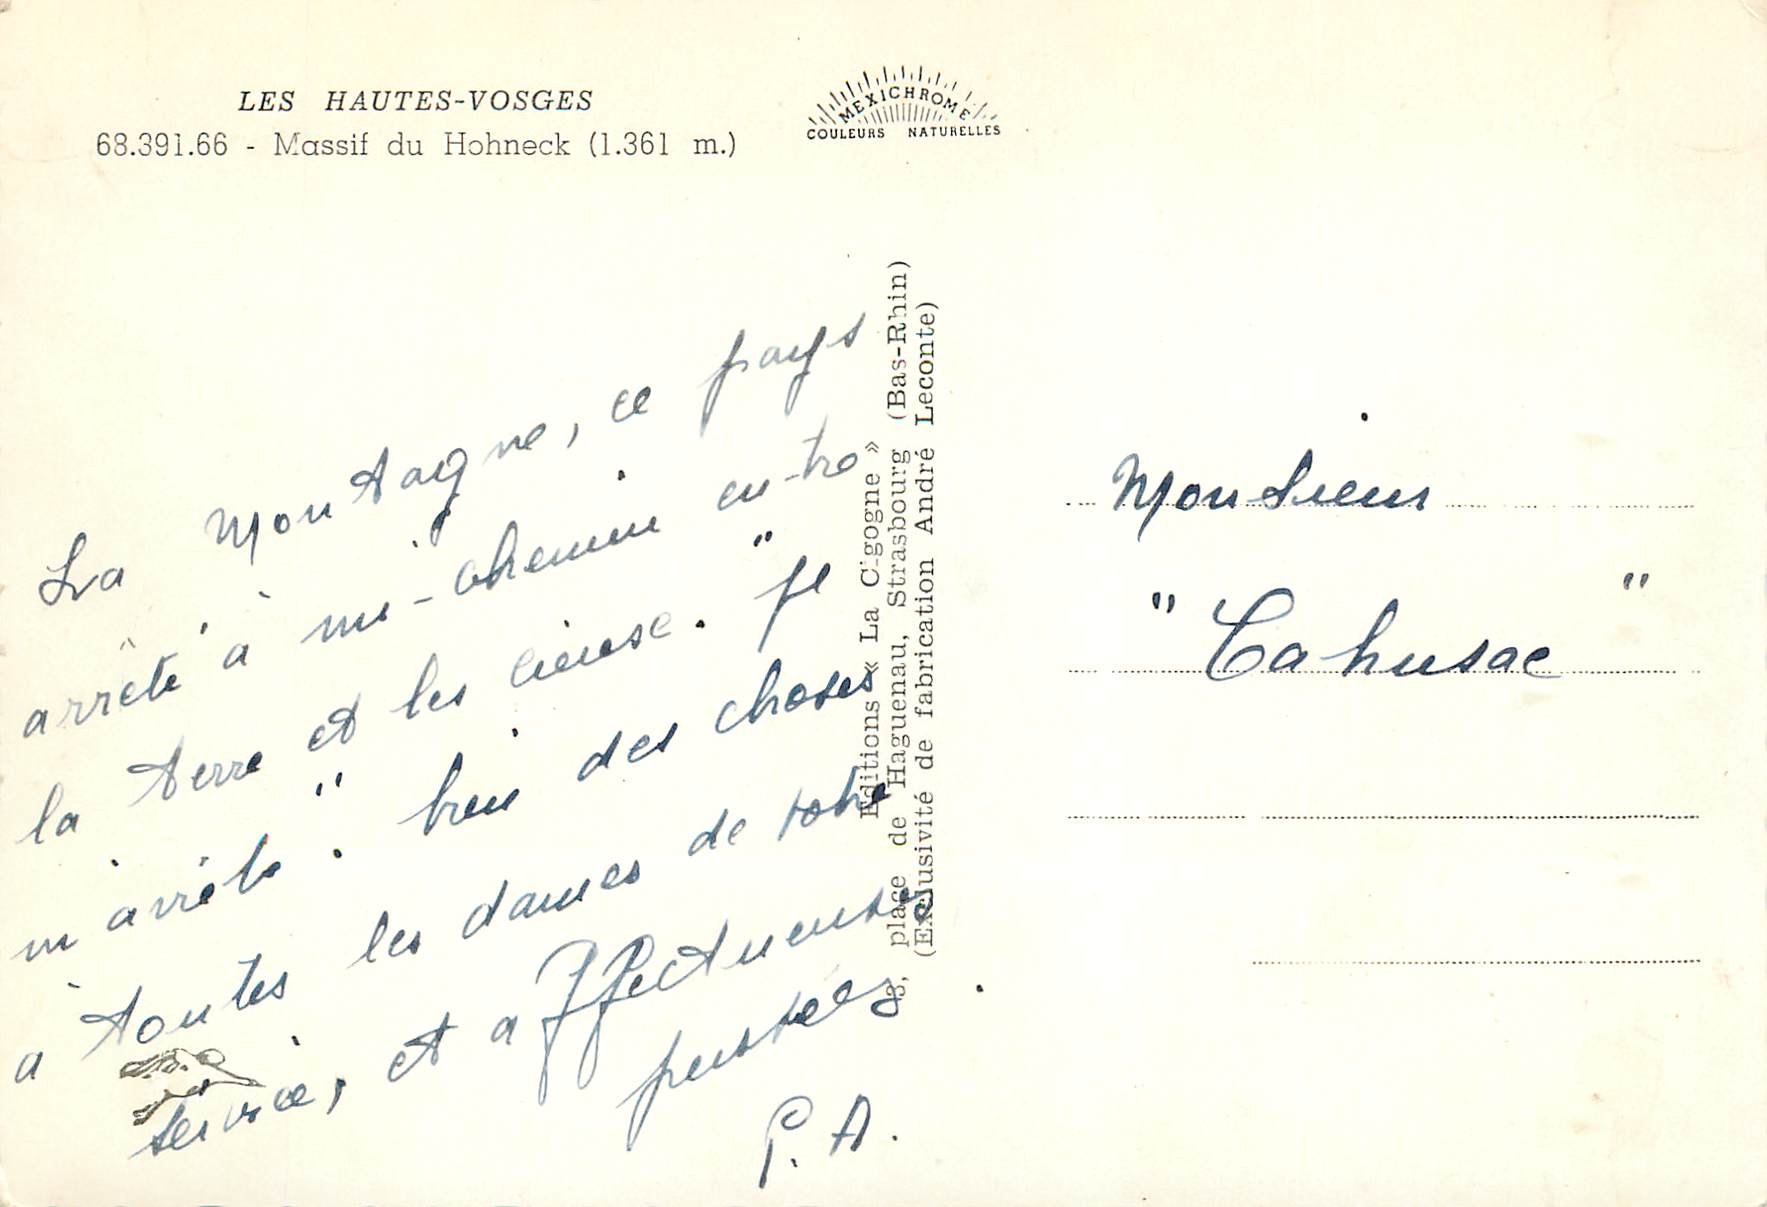 LES HAUTES-VOSGES
68.391.66 - Massif du Hohneck (1.361 m.)
MEXICHROME
COULEURS NATURELLES
La Montagne, ce pays
arrêté à mi-chemin entre
la terre et les cieux. "Je
m'arrête". bien des choses
à toutes les dames de votre
service, et affectueuses
pensées.
P. A.
Editions « La Cigogne »
3, place de Haguenau, Strasbourg (Bas-Rhin)
(Exclusivité de fabrication André Leconte)
Monsieur
" Cahusac "